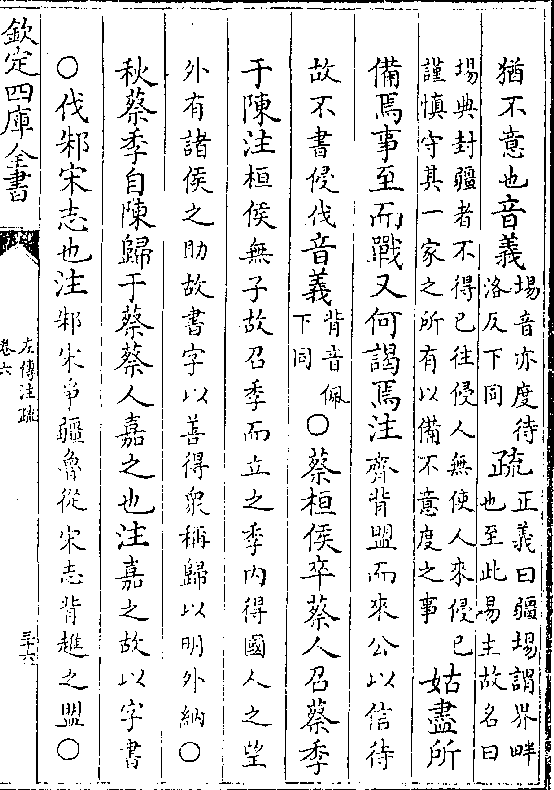 猶不意也音義埸音亦度待
洛反下同疏正義曰疆埸謂界畔
也至此易主故名曰
埸典封疆者不得已往侵人無使人來侵已
謹慎守其一家之所有以備不意度之事姑盡所
備焉事至而戰又何謁焉注齊背盟而來公以信待
故不書侵伐音義背音佩
下同○蔡桓侯卒蔡人召蔡季
于陳注桓侯無子故召季而立之季内得國人之望
外有諸侯之助故書字以善得衆稱歸以明外納○
秋蔡季自陳歸于蔡蔡人嘉之也注嘉之故以字書
○伐邾宋志也注邾宋爭疆魯從宋志背趡之盟○
欽定四庫全書
左傳注疏
卷六
三十六